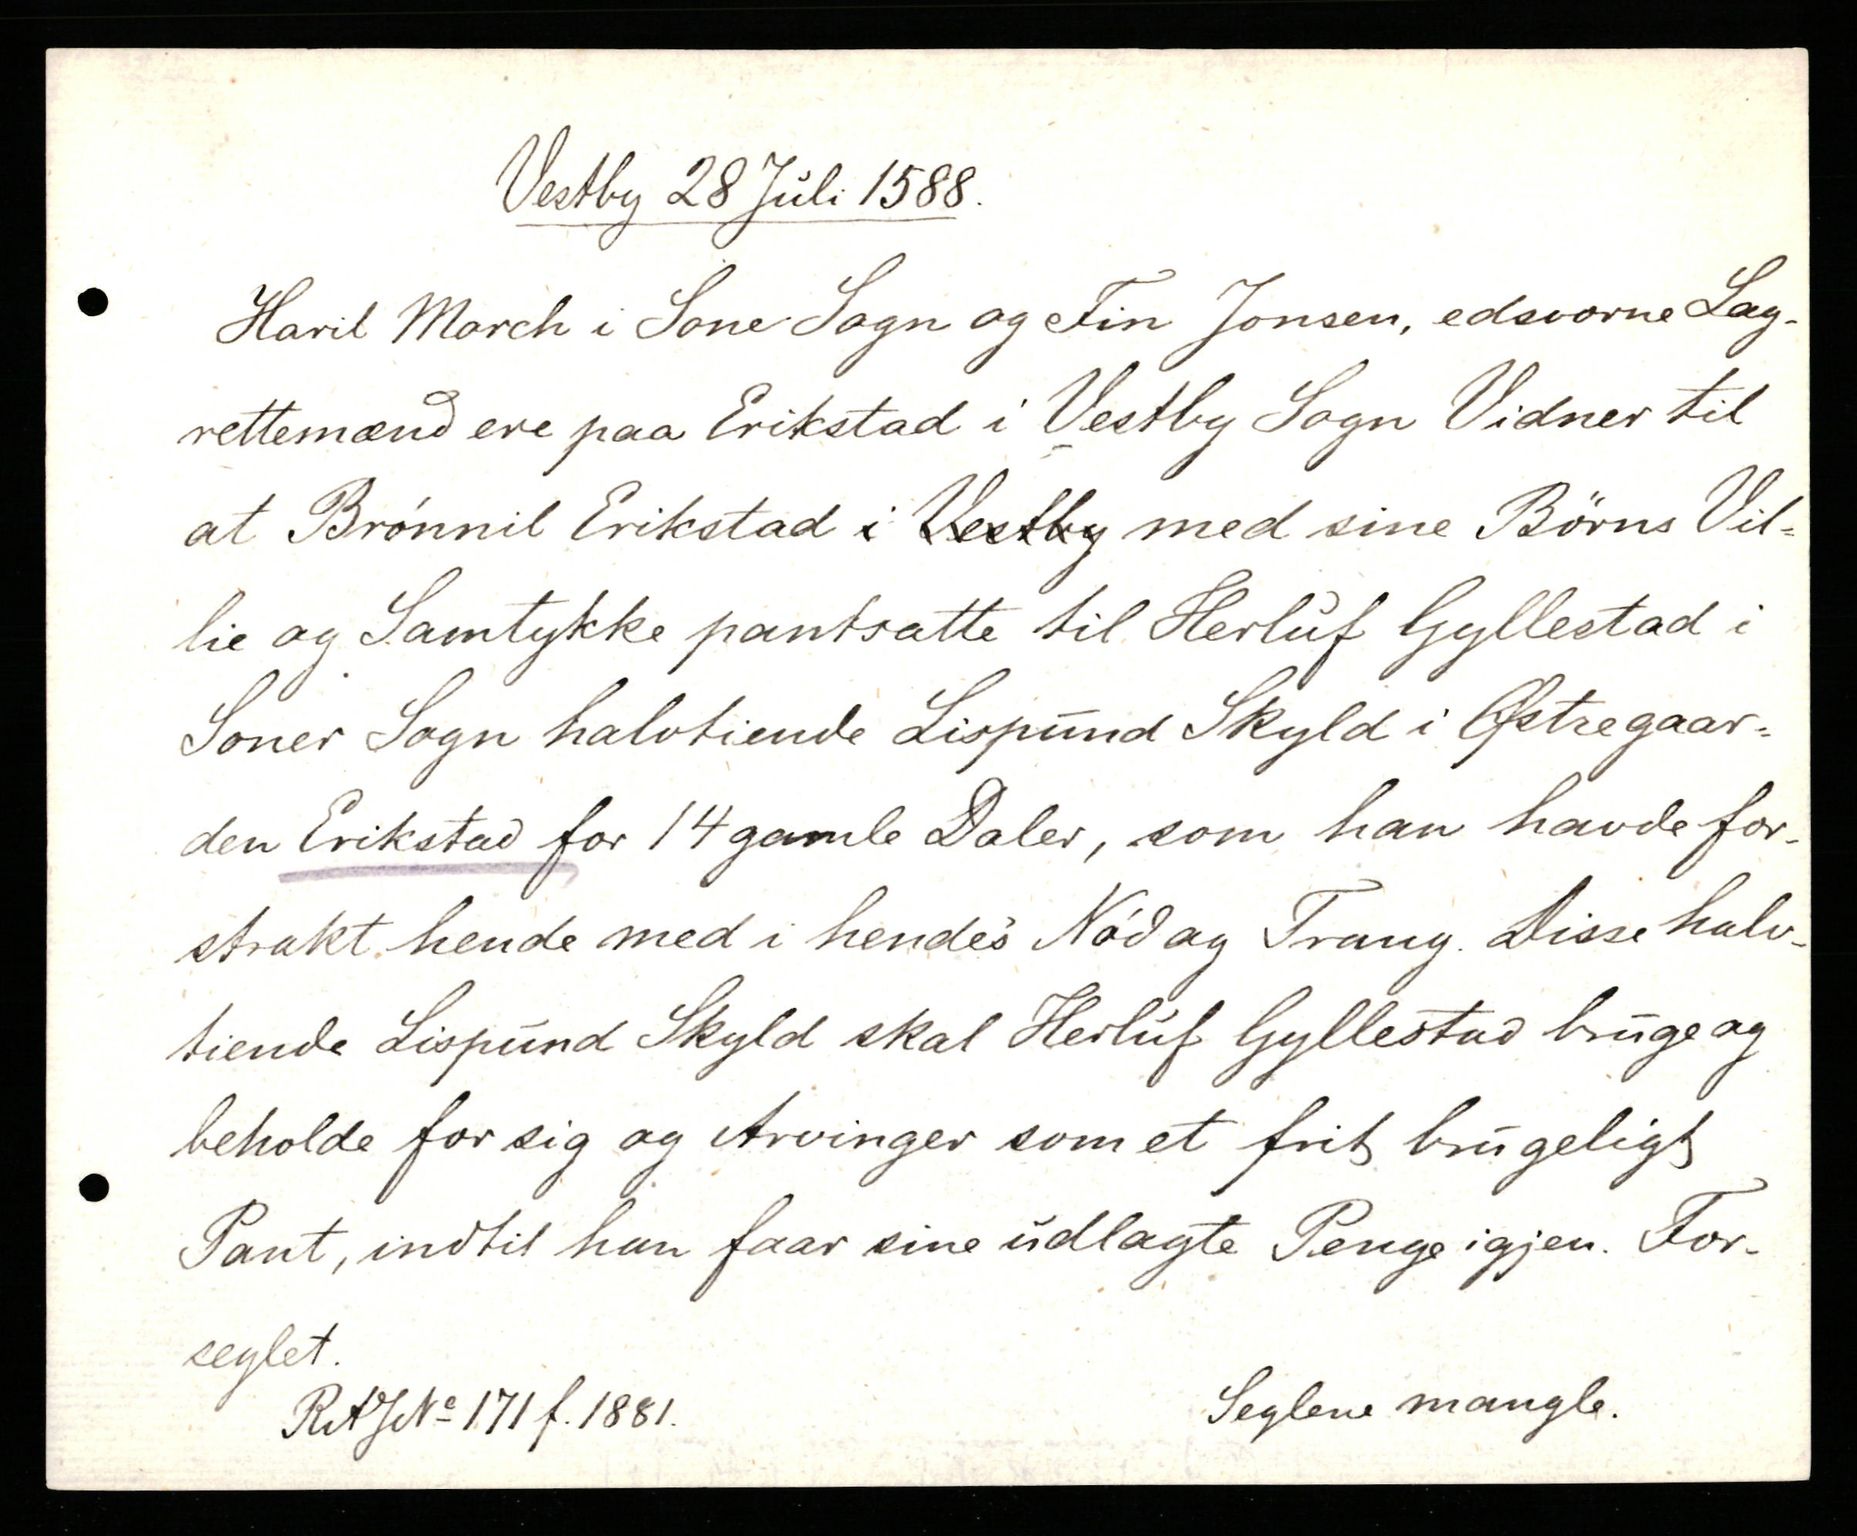 Vestby 28 Juli 1588.
Haril March i Sone Sogn og Fin Jonsen, edsvorne Lag-
rettemænd ere paa Erikstad i Vestby Sogn Vidner til
at Brónnil Erikstad i Vestby med sine Börns Vil=
lie og Samtykke pantsatte til Herluf Gyllestad i
Soner Sogn halvtiende Lispund Skyld i Østregaar=
den Erikstad for 14 gamle Daler, som han havde for-
strakt hende med i hendes Nód og Trang. Disse halv-
tiende Lispund Skyld skal Herluf Gyllestad bruge og
beholde for sig og Arvinger som et frit brugeligt
Pant, indtil han faar sine udlagte Penge igjen. For-
seglet.
RAJNo 171 f. 1881.
Seglene mangle.